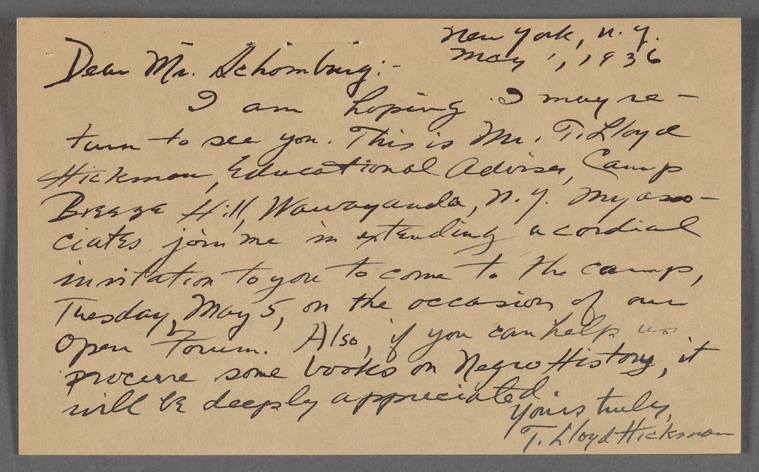 New York, N.Y.
May 1, 1936
Dear Mr. Schomburg:-
I am hoping I may re-
turn to see you. This is Mr. T. Lloyd
Hickman, Educational Adviser, Camp
Breeze Hill, Wawayanda, N.Y. My asso-
ciates join me in extending a cordial
invitation to you to come to the camp,
Tuesday, May 5, on the occasion of our
Open Forum. Also, if you can help us
procure some books on Negro History, it
will be deeply appreciated.
Yours truly,
T. Lloyd Hickman